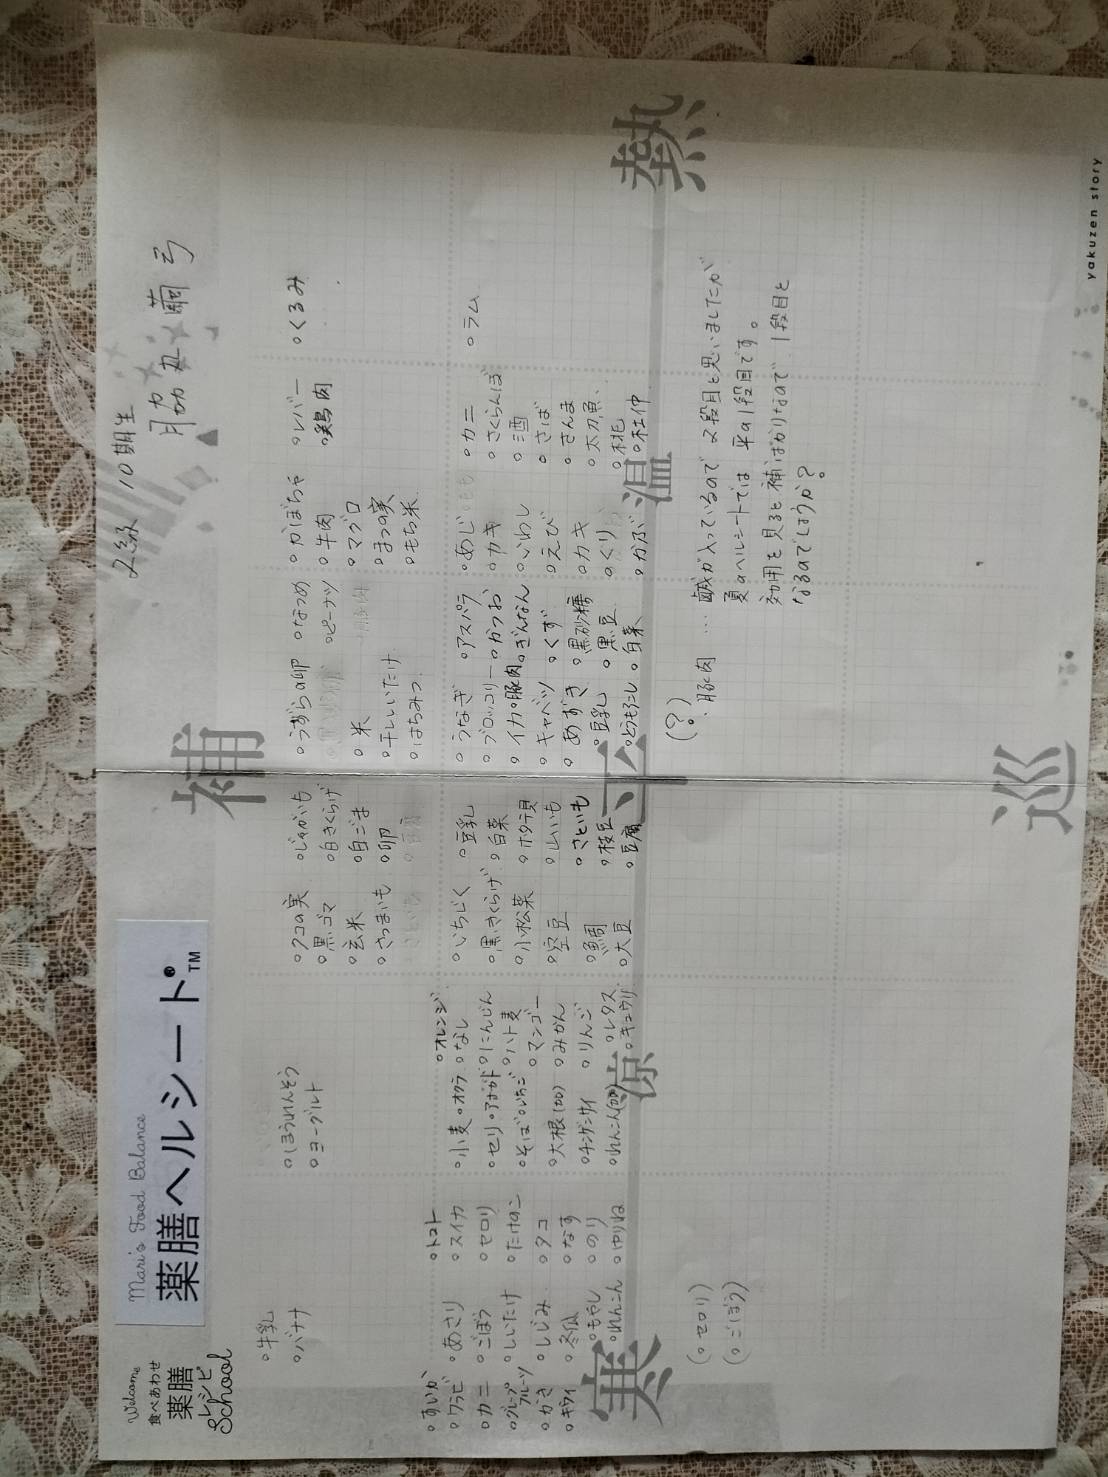 Welcome
食べあわせ
薬膳
レシピ
School
Mari's Food Balance
薬膳ヘルシート®
TM
2級 10期生
補
。牛乳
。バナナ
。ほうれんそう
。ヨーグルト
。クコの実
。黒ゴマ
。玄米
。さつまいも
。じゃがいも
。白きくらげ
。白ごま
。卵
。うずらの卵
。米
。干ししいたけ
。はちみつ
。なつめ
。ピーナッツ
。かぼちゃ
。牛肉
。マグロ
。まつの実
。もち米
。レバー
。鶏肉
。くるみ
。すいか
。ワラビ
。カニ
。グレープフルーツ
。かき
。キウイ
。あさり
。ごぼう
。しいたけ
。しじみ
。冬瓜
。もやし
。れんこん
。トマト
。スイカ
。セロリ
。たけのこ
。タコ
。なす
。のり
。ゆりね
。小麦
。オクラ
。セリ
。アボカド
。そば
。いちご
。大根(加)
。チンゲンサイ
。れんこん(加)
。オレンジ
。なし
。にんじん
。ハト麦
。マンゴー
。みかん
。りんご
。レタス
。キュウリ
。いちじく
。黒きくらげ
。小松菜
。空豆
。鯛
。大豆
。豆乳
。白菜
。ホタテ貝
。山いも
。さといも
。枝豆
。豆腐
。うなぎ
。ブロッコリー
。イカ
。豚肉
。キャベツ
。あずき
。豆乳
。とうもろこし
。アスパラ
。かつお
。ぎんなん
。くず
。黒砂糖
。黒豆
。白菜
。あじ
。カキ
。いわし
。えび
。カキ
。くり
。かぶ
。カニ
。さくらんぼ
。酒
。さば
。さんま
。太刀魚
。桃
。杜仲
。ラム
寒
涼
平
温
熱
(。セロリ)
(。ごぼう)
(?)
・豚肉 … 鹹が入っているので 2段目と思いましたが
夏のヘルシートでは 平の1段目です。
効用を見ると補ばかりなので 1段目と
なるのでしょうか?
巡
yakuzen story